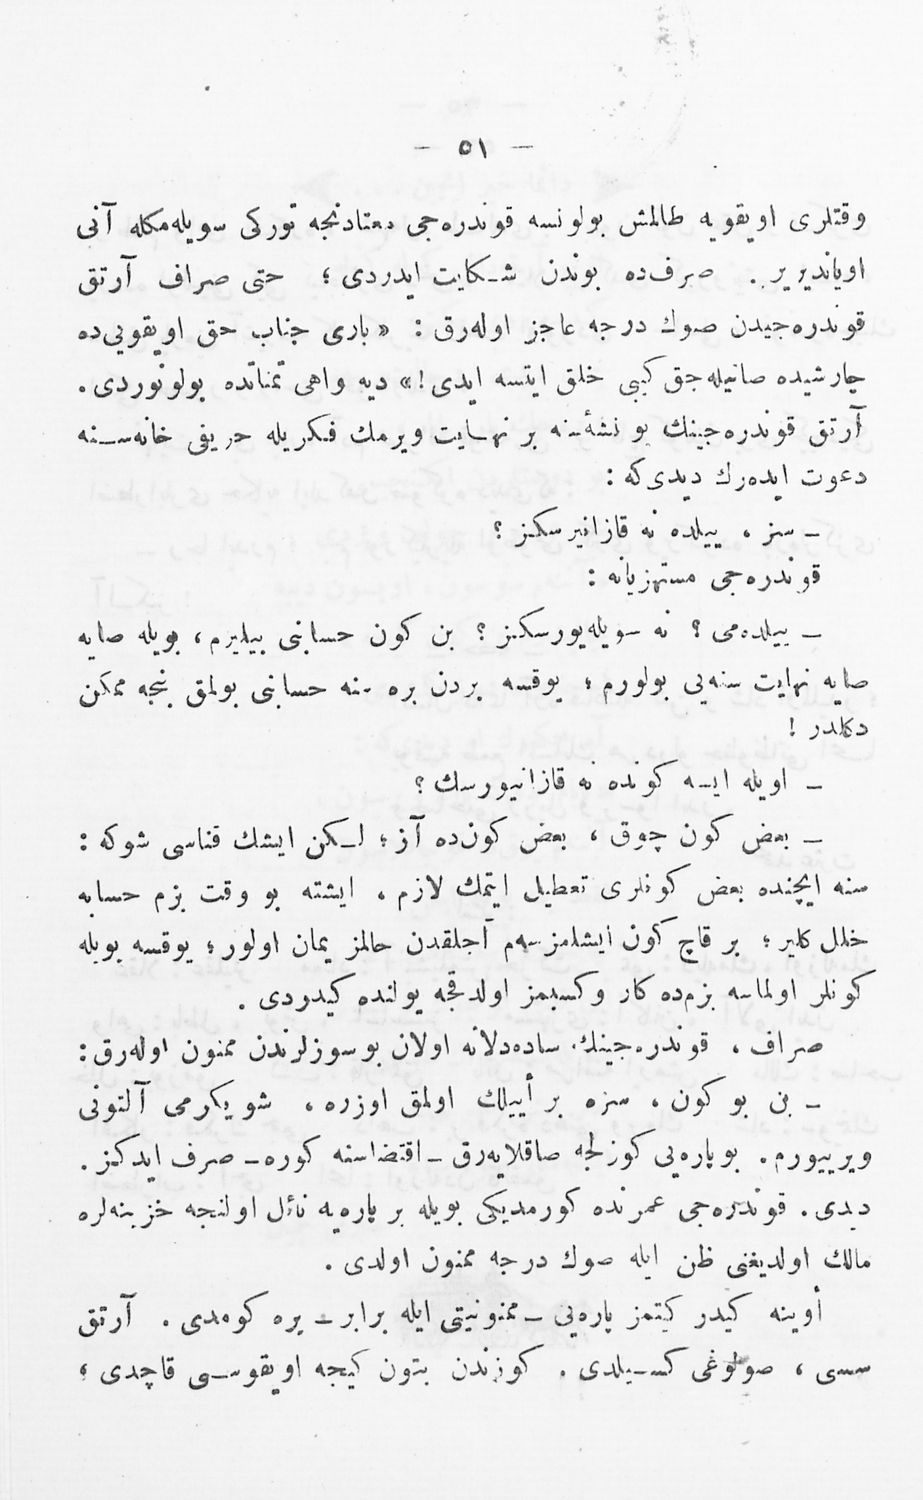 — ٥١ —
وقتلرى اويقويه طالمش بولونسه قوندره‌جى معتادنجه توركى سويله‌مكله آنى
اوياندیریر . صرف‌ده بوندن شكايت ايدردى ؛ حتى صراف آرتق
قوندره‌جيدن صوك درجه عاجز اوله‌رق : « بارى جناب حق اويقويى‌ده
چارشيده صاتيله‌جق كبى خلق ايتسه ايدى !» ديه واهى تمناتده بولونوردى .
آرتق قوندره‌جينك بو نشئه‌سنه بر نهايت ويرمك فكريله حريفى خانه‌سنه
دعوت ايده‌رك ديدى‌كه :
ـ سز ، ييلده نه قازانيرسكز ؟
قوندره‌جى مستهزيانه :
ـ ييلده‌مى ؟ نه سويله‌يورسكز ؟ بن كون حسابنى بيليرم ، بويله صايه
صايه نهايت سنه‌يى بولورم ؛ يوقسه بردن بره سنه حسابنى بولمق بنجه ممكن
دكلدر !
ـ اويله ايسه كونده نه قازانيورسك ؟
ـ بعض كون چوق ، بعض كون‌ده آز ؛ لكن ايشك فناسى شوكه :
سنه ايچنده بعض كونلرى تعطيل ايتمك لازم . ايشته بو وقت بزم حسابه
خلل كلير ؛ بر قاچ كون ايشلمزسه‌م آجلقدن حالمز يمان اولور ؛ يوقسه بويله
كونلر اولماسه بزم‌ده كار وكسبمز اولدقجه يولنده كيدردى .
صراف ، قوندره‌جينك ساده‌دلانه اولان بو سوزلرندن ممنون اوله‌رق :
ـ بن بو كون ، سزه بر أييلك اولمق اوزره ، شو يكرمى آلتونى
ويرييورم . بو پاره‌يى كوزلجه صاقلايه‌رق ـ اقتضاسنه كوره ـ صرف ايدكز .
ديدى . قوندره‌جى عمرنده كورمديكى بويله بر پاره‌يه نائل اولنجه خزينه‌لره
مالك اولديغنى ظن ايله صوك درجه ممنون اولدى .
أوينه كيدر كيتمز پاره‌يى ـ ممنونيتى ايله برابر ـ يره كومدى . آرتق
سسى ، صولوغى كسيلدى . كوزندن بتون كيجه اويقوسى قاچدى ؛